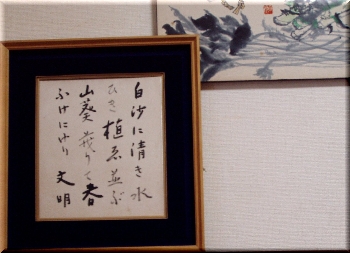 白沙に清き水
ひき植ゑ並ぶ
山葵茂りて春
ふけにけり 文明